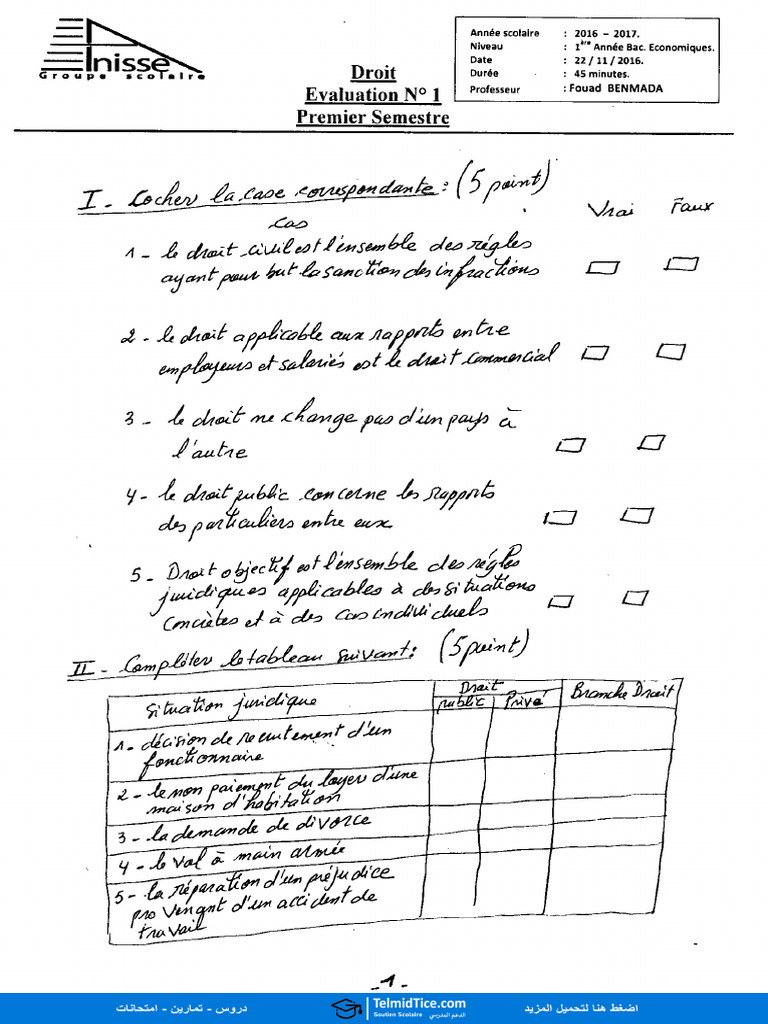 Anisse
Groupe scolaire
Droit
Evaluation N° 1
Premier Semestre
Année scolaire : 2016 – 2017.
Niveau : 1ère Année Bac. Economiques.
Date : 22 / 11 / 2016.
Durée : 45 minutes.
Professeur : Fouad BENMADA
I - Cocher la case correspondante : (5 point)
Vrai Faux
cas
1 - le droit civil est l'ensemble des règles
ayant pour but la sanction des infractions
2 - le droit applicable aux rapports entre
employeurs et salariés est le droit commercial
3 - le droit ne change pas d'un pays à
l'autre
4 - le droit public concerne les rapports
des particuliers entre eux
5 - Droit objectif est l'ensemble des règles
juridiques applicables à des situations
concrètes et à des cas individuels
II - Compléter le tableau suivant : (5 point)
Situation juridique Droit Branche Droit
public Privé
1 - décision de recrutement d'un
fonctionnaire
2 - le non paiement du loyer d'une
maison d'habitation
3 - la demande de divorce
4 - le vol à main armée
5 - la réparation d'un préjudice
provenant d'un accident de
travail
-1-
دروس - تمارين - امتحانات
TelmidTice.com
Soutien Scolaire الدعم المدرسي
اضغط هنا لتحميل المزيد